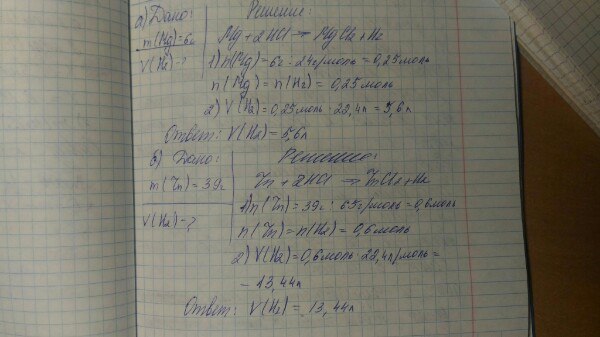 а) Дано: Решение:
m(Mg)=6г Mg+2HCl → MgCl2+H2
V(H2)-? 1) n(Mg)=6г : 24г/моль=0,25моль
n(Mg)=n(H2)=0,25моль
2) V(H2)=0,25моль·22,4л=5,6л
Ответ: V(H2)=5,6л
б) Дано: Решение:
m(Zn)=39г Zn+2HCl → ZnCl2+H2
V(H2)-? 1) n(Zn)=39г : 65г/моль=0,6моль
n(Zn)=n(H2)=0,6моль
2) V(H2)=0,6моль·22,4л/моль=
=13,44л
Ответ: V(H2)=13,44л